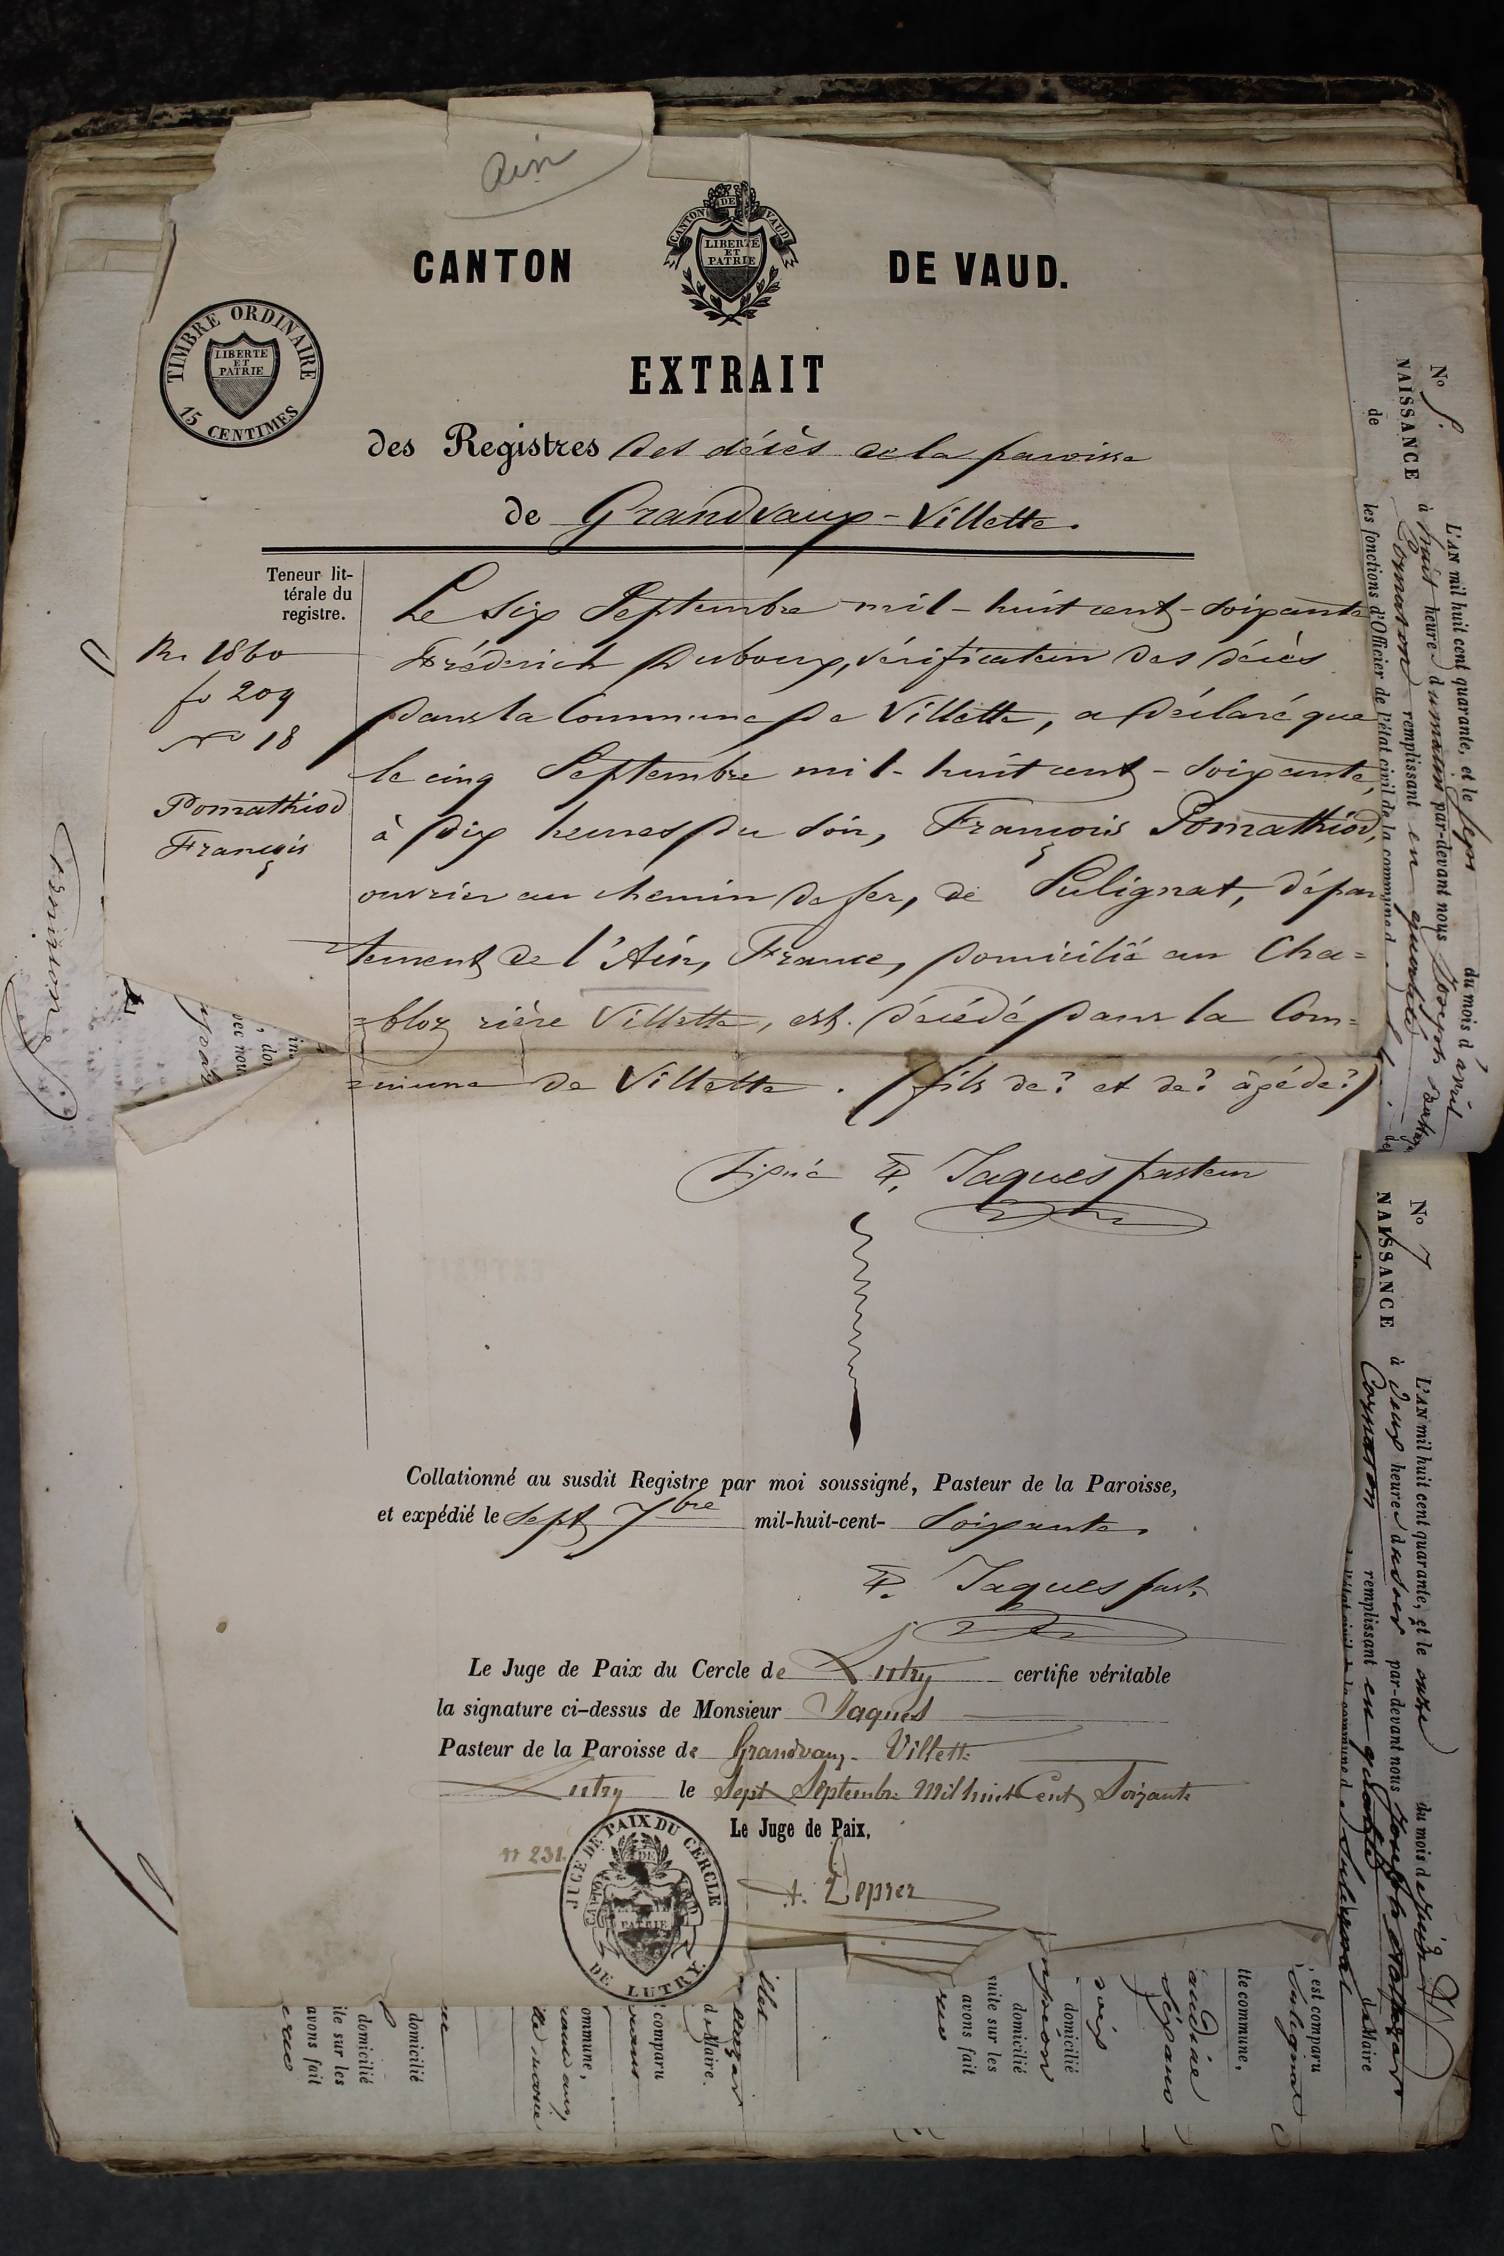 Ain
CANTON DE VAUD.
CANTON DE VAUD
LIBERTÉ
ET
PATRIE
TIMBRE ORDINAIRE
LIBERTÉ
ET
PATRIE
15 CENTIMES
EXTRAIT
des Registres des décès de la paroisse
de Grandvaux-Villette.
Teneur lit-
térale du
registre.
Rr 1860
fo 209
No 18
Pomathiod
François
Le six Septembre mil-huit cent-soixante
Fréderich Duboux, vérificateur des décès
dans la Commune de Villette, a déclaré que
le cinq Septembre mil-huit cent-soixante,
à dix heures du soir, François Pomathiod,
ouvrier au chemin de fer, de Sulignat, dépar
tement de l'Ain, France, domicilié au Cha=
=bloz rière Villette, est décédé dans la Com=
=mune de Villette. (fils de? et de? âgé de?)
Signé F. Jaques pasteur
Collationné au susdit Registre par moi soussigné, Pasteur de la Paroisse,
et expédié le sept 7bre mil-huit-cent- soixante.
F. Jaques past.
Le Juge de Paix du Cercle de Lutry certifie véritable
la signature ci-dessus de Monsieur Jaques
Pasteur de la Paroisse de Grandvaux-Villette
Lutry le Sept Septembre Mil huit Cent Soixante
Le Juge de Paix,
n 231.
JUGE DE PAIX DU CERCLE
DE LUTRY.
PATRIE
No
NAISSANCE
de
L'AN mil huit cent quarante, et le sept du mois d'avril
à huit heure du matin par-devant nous Joseph
remplissant en qualité
les fonctions d'Officier de l'état civil de la commune d
No 7
NAISSANCE
L'AN mil huit cent quarante, et le onze du mois de juin
à deux heure du soir par-devant nous Joseph
Cormoron remplissant en qualité de Maire
est comparu
tte commune,
domicilié
domicilié
suite sur les
avons fait
d Maire.
comparu
ommune,
domicilié
domicilié
ite sur les
avons fait